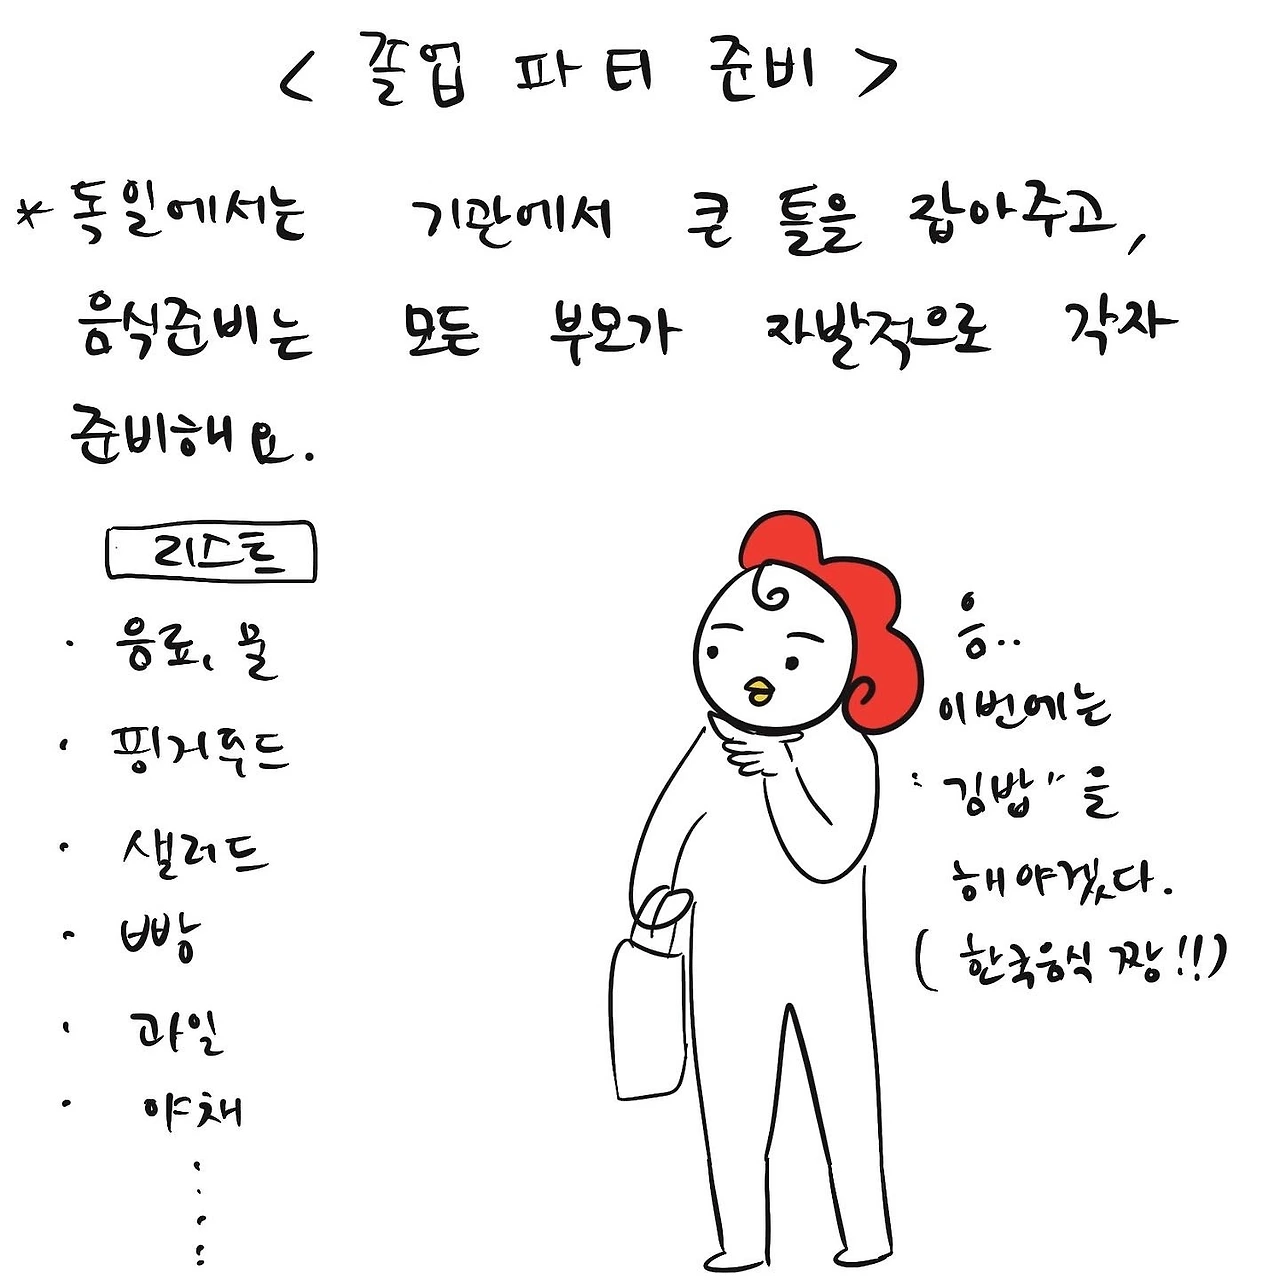 < 졸업 파티 준비 >
* 독일에서는 기관에서 큰 틀을 잡아주고,
음식준비는 모든 부모가 자발적으로 각자
준비해요.
리스트
· 음료, 물
· 핑거푸드
· 샐러드
· 빵
· 과일
· 야채
음..
이번에는
"김밥"을
해야겠다.
(한국음식 짱!!)